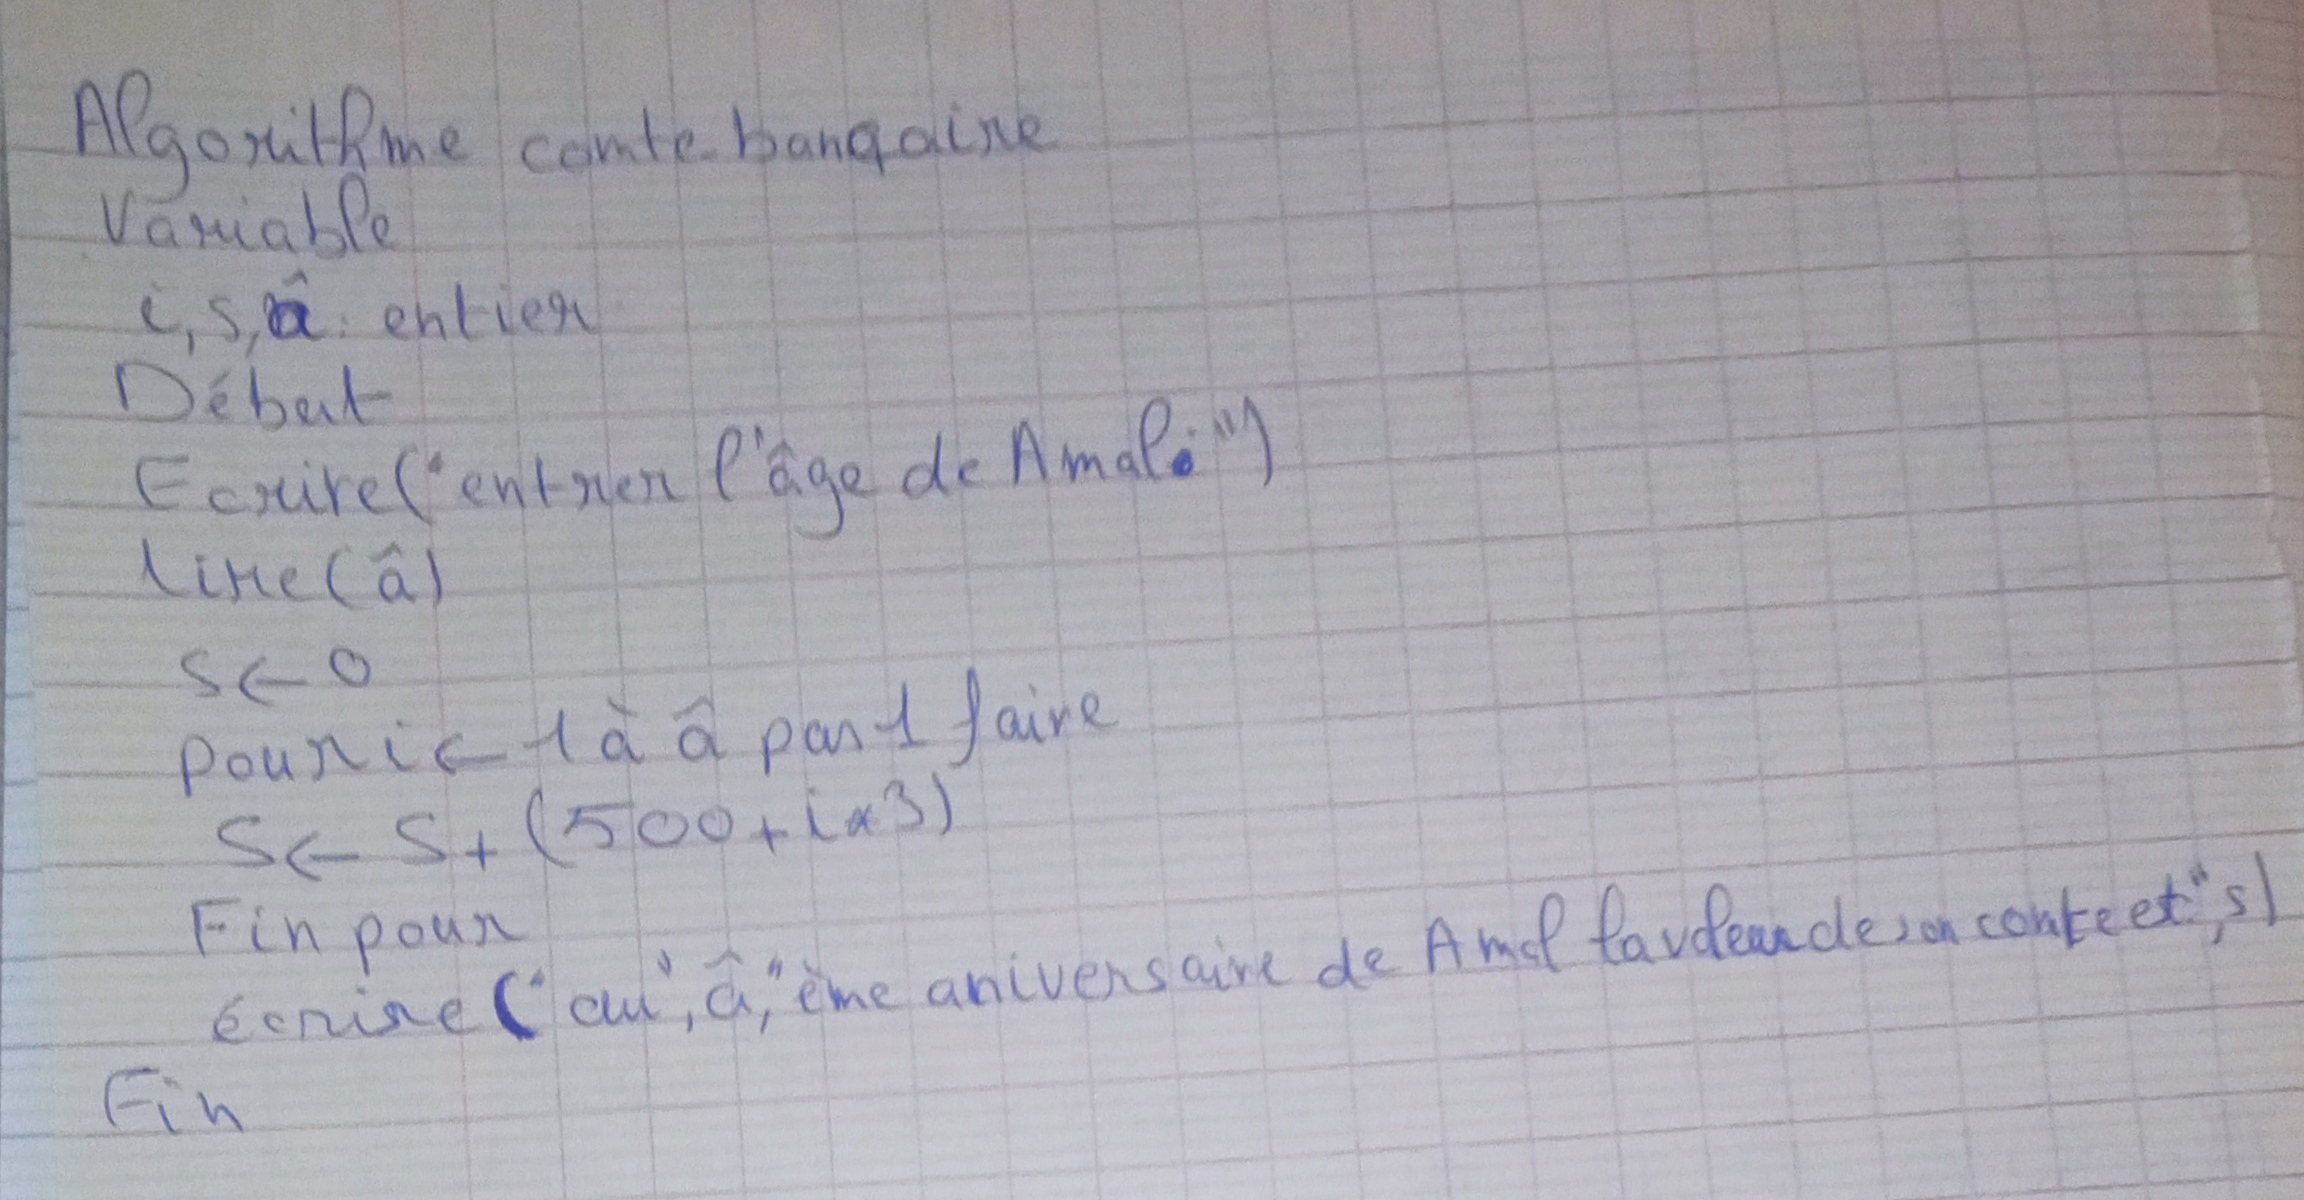 Algorithme comte bancaire
Variable
i, s, â : entier
Début
Ecrire("entrer l'âge de Amal:")
lire(â)
s← 0
pour i← 1 à â par 1 faire
S← S+(500+i*3)
Fin pour
écrire("au", â, "ème aniversaire de Amal de son conte et", s)
Fin